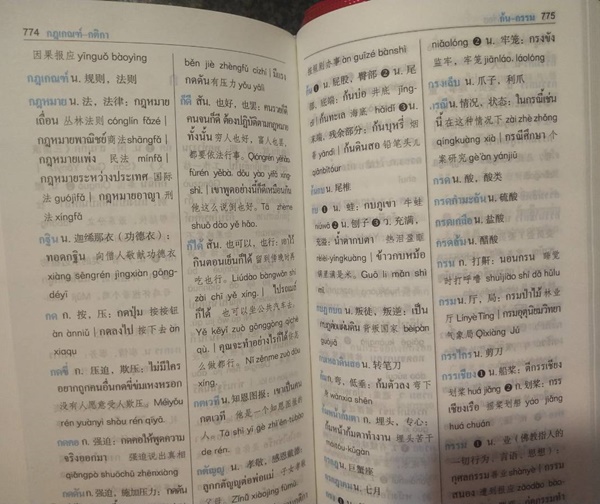 774 กฎเกณฑ์–กติกา
因果报应 yīnguǒ bàoyìng
กฎเกณฑ์ น. 规则，法则
กฎหมาย น. 法，法律：กฎหมาย
เถื่อน 丛林法则 cónglín fǎzé |
กฎหมายพาณิชย์ 商法 shāngfǎ |
กฎหมายแพ่ง 民法 mínfǎ |
กฎหมายระหว่างประเทศ 国际
法 guójìfǎ | กฎหมายอาญา 刑
法 xíngfǎ
กฐิน น. 迦絺那衣（功德衣）：
ทอดกฐิน 向僧人敬献功德衣
xiàng sēngrén jìngxiàn gōng-
déyī
กด ก. 按，压：กดปุ่ม 按按钮
àn ànniǔ | กดลงไป 按下去 àn
xiaqu
กดขี่ ก. 压迫，欺压：ไม่มีใคร
อยากถูกคนอื่นกดขี่ข่มเหงหรอก
没有人愿意受人欺压。Méiyǒu
rén yuànyì shòu rén qīyā.
ก. 强迫：กดคอให้พูดความ
จริงออกมา 强迫说出真相
qiǎngpò shuōchū zhēnxiàng
ก. 强迫，施加压力：
běn jiè zhèngfú cìzhī | มีแรง
กดดัน 有压力 yǒu yālì
ก็ดี สัน. 也好，也罢：คนรวยก็ดี
คนจนก็ดี ต้องปฏิบัติตามกฎหมาย
ทั้งนั้น 穷人也好，富人也罢，
都要依法行事。Qióngrén yěhǎo,
fùrén yěbà, dōu yào yīfǎ xíng-
shì. | เขาพูดอย่างนี้ก็ดีเหมือนกัน
他这么说倒也好。Tā zhème
shuō dào yě hǎo.
ก็ได้ สัน. 也可以，也行：
กินตอนเย็นก็ได้ 留到傍晚时再
吃也行。Liúdào bàngwǎn shí
zài chī yě xíng. | ไปรถเมล์
ก็ได้ 也可以坐公共汽车去。
Yě kěyǐ zuò gōnggòng qìchē
qù. | คุณจะทำอย่างไรก็ได้ 你怎
么做都行。Nǐ zěnme zuò dōu
xíng.
กตเวที น. 知恩图报：เขาเป็นคน
กตเวที 他是一个知恩图报的
人。Tā shì yí gè zhī'ēn-túbào
de rén.
กตัญญู น. 孝敬，感恩戴德：
ลูกกตัญญูต่อพ่อแม่ 子女孝敬
父母。Zǐnǚ xiàojìng fùmǔ.
ก้น–กรรม 775
àn guīzé bànshì
น. 屁股，臀部 ❷ น. 尾
部，底端：
海底 hǎidǐ ❸ น.
末端，残余部分：ก้นบุหรี่ 烟
蒂 yāndì | ก้นดินสอ 铅笔头儿
qiānbǐtóur
น. 尾椎
❶ น. 蛙：กบภูเขา 牛蛙
niúwā ❷ น. 刨子 ❸ ว. 充满，
充盈：น้ำตากบตา 热泪盈眶
rèlèi-yíngkuàng | ข้าวกบหม้อ
锅里满是米。Guō li mǎn shì
mǐ
น. 叛徒，叛逆：เป็น
背叛国家 bèipàn
guójiā
น. 转笔刀
ก. 弯，低垂：ก้มตัวลง 弯下身
wānxia shēn
ก. 埋头，专心：
ก้มหน้าก้มตาทำงาน 埋头苦干
máitóu-kǔgàn
น. 巨蟹座
น. 七月
niǎolóng ❷ น. 牢笼：กรงขัง
监牢，牢笼 jiānláo, láolóng
กรงเล็บ น. 爪子，利爪
กรณี น. 情况，状态：ในกรณีเช่น
นี้ 在这种情况下 zài zhè zhǒng
qíngkuàng xià | กรณีศึกษา 个
案研究 gè'àn yánjiū
กรด น. 酸，酸类
กรดกำมะถัน น. 硫酸
กรดเกลือ น. 盐酸
กรดส้ม น. 醋酸
กรน ก. 打鼾：นอนกรน 睡觉
时打呼噜 shuìjiào shí dǎ hūlu
กรม น. 厅，局：กรมป่าไม้ 林业
厅 Línyè Tīng | กรมอุตุนิยมวิทยา
气象局 Qìxiàng Jú
กรรไกร น. 剪刀
กรรเชียง ❶ น. 船桨：ตีกรรเชียง
划桨 huá jiǎng ❷ ก. 划桨：
กรรเชียงเรือ 摇桨划船
huá chuán
กรรม ❶ น. 业（佛教指人的
一切行为、言语、思想）：
กุศลกรรม 善业 shànyè |